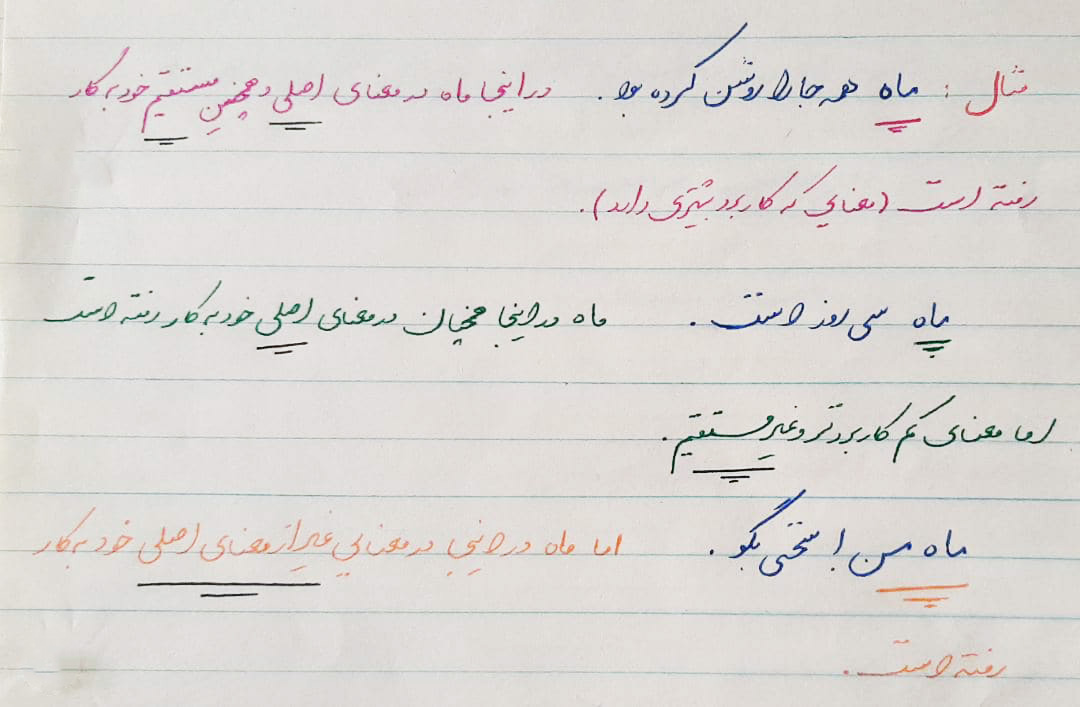 مثال : ماه همه جا را روشن کرده بود . در اینجا ماه در معنای اصلی و همچنین مستقیم خود به کار
رفته است (معنایی که کاربرد بیشتری دارد).
ماه سی روز است . ماه در اینجا همچنان در معنای اصلی خود به کار رفته است
اما معنای کم کاربرد تر و غیر مستقیم.
ماه من ! سخنی بگو . اما ماه در اینجا در معنایی غیر از معنای اصلی خود به کار
رفته است.